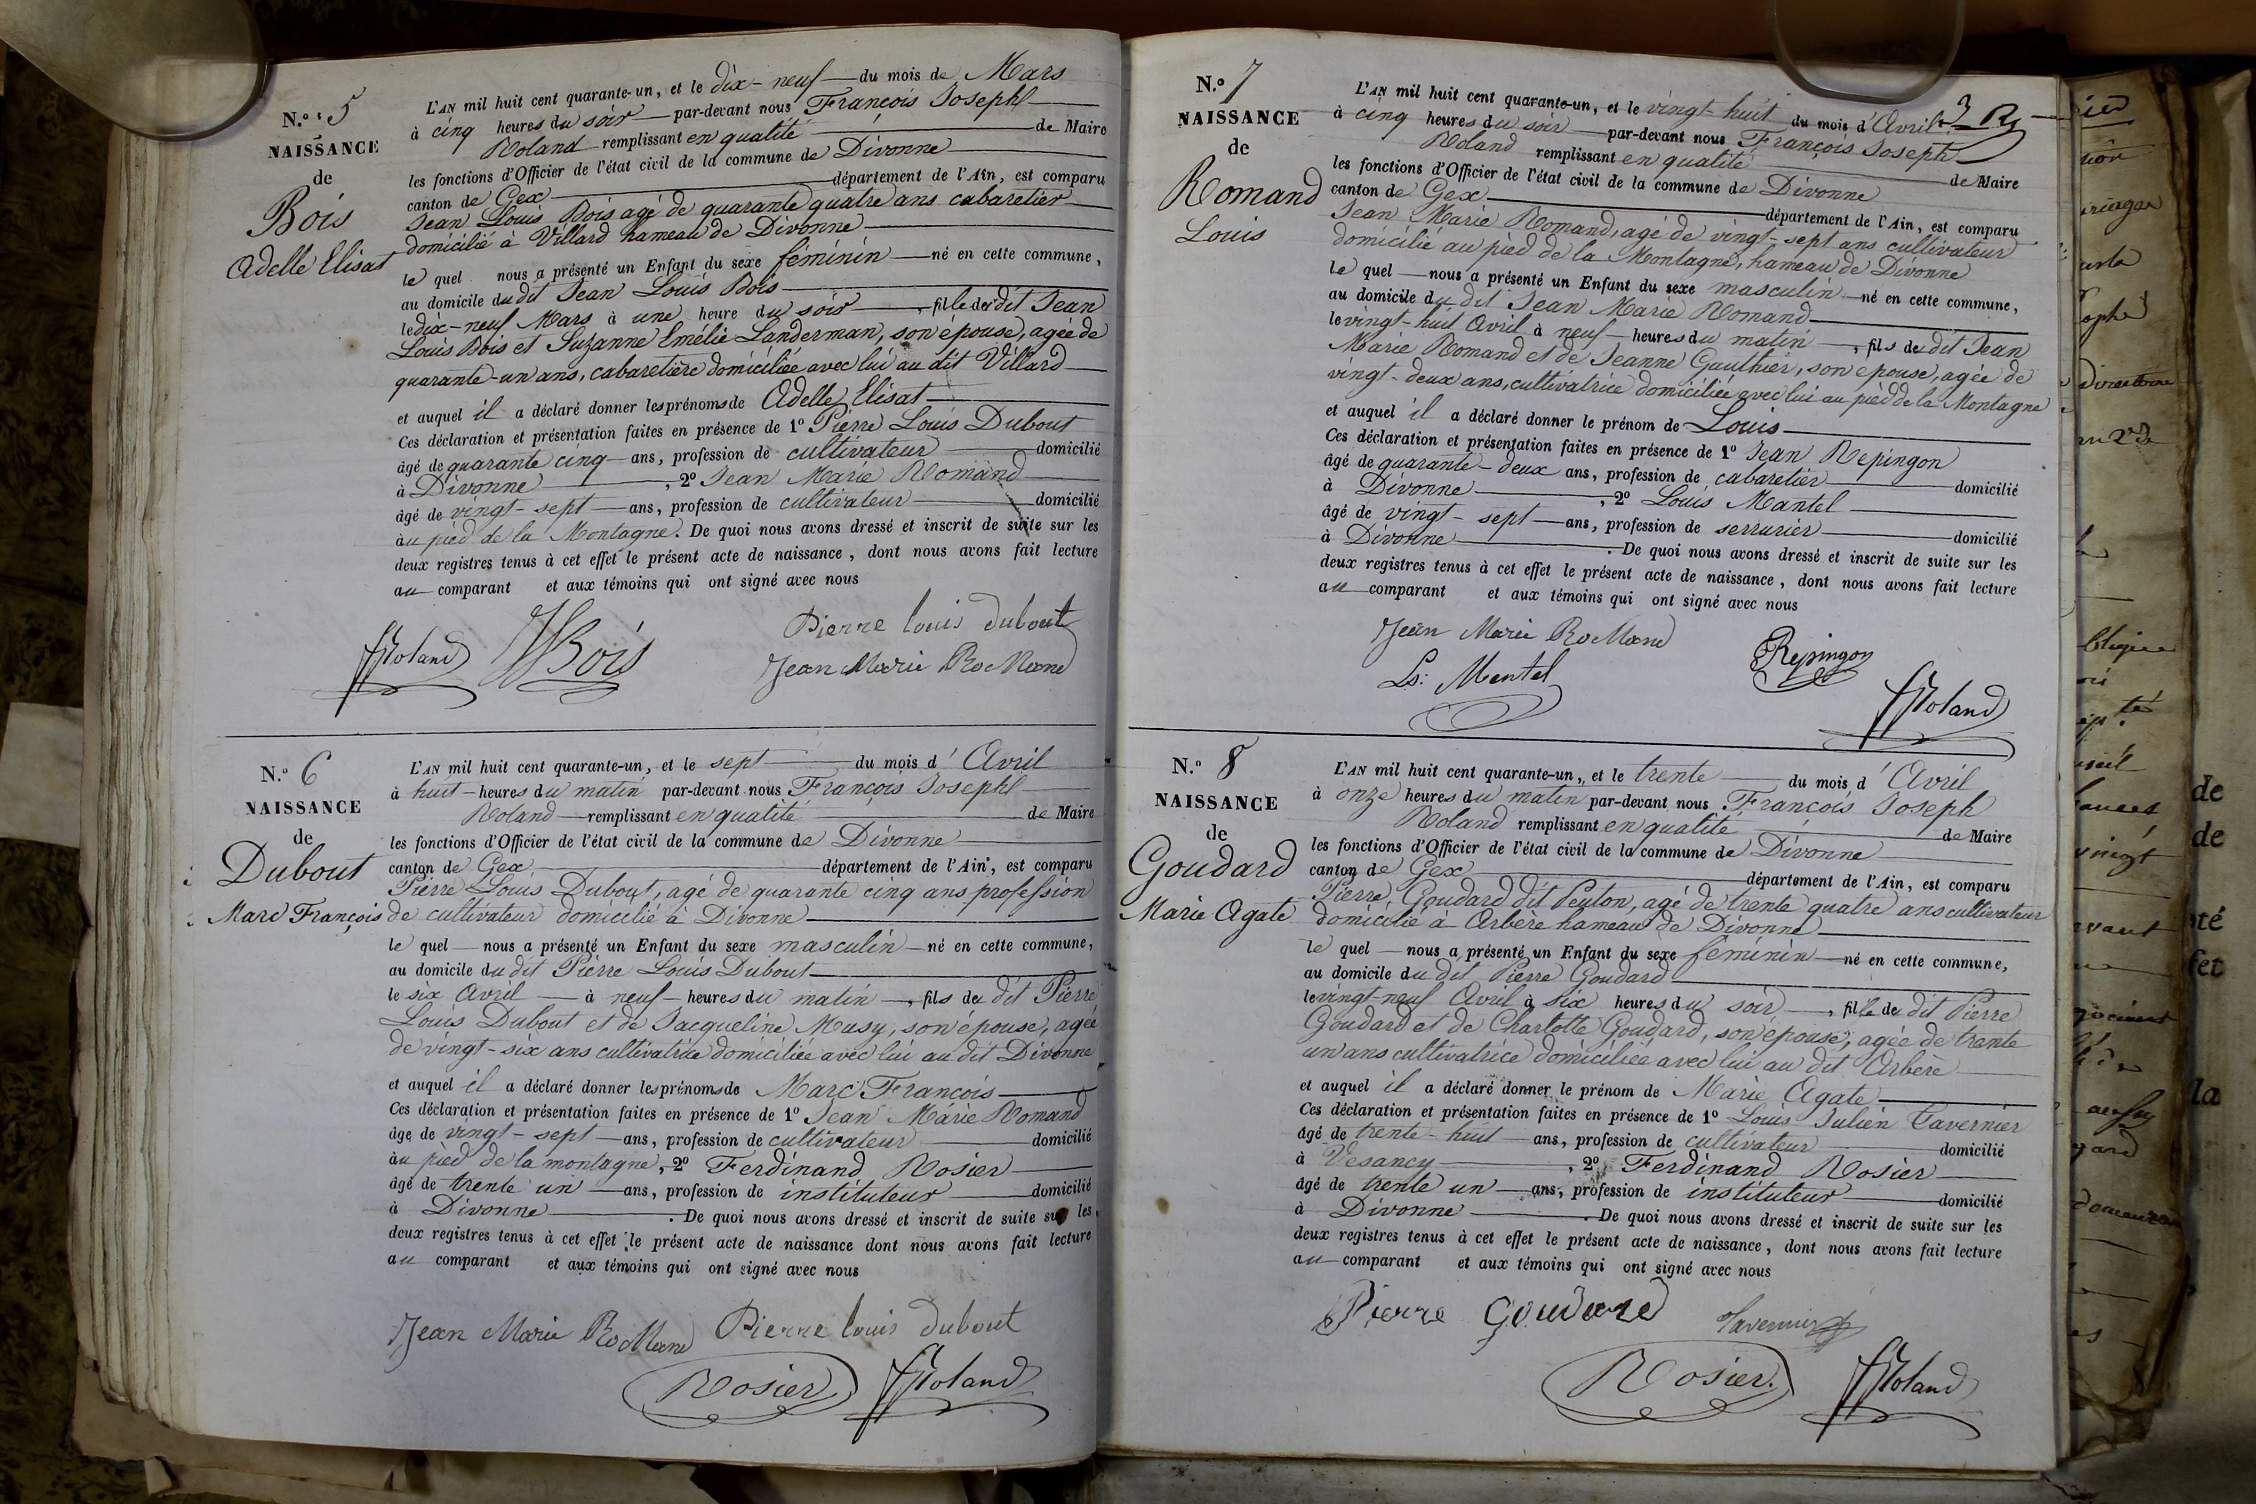 N.º 5
NAISSANCE
de
Bois
Adelle Elisat
L'AN mil huit cent quarante-un, et le dix-neuf du mois de Mars
à cinq heures du soir par-devant nous François Joseph
Roland remplissant en qualité de Maire
les fonctions d'Officier de l'état civil de la commune de Divonne
canton de Gex département de l'Ain, est comparu
Jean Louis Bois agé de quarante quatre ans cabaretier
domicilié à Villard hameau de Divonne
le quel nous a présenté un Enfant du sexe féminin né en cette commune,
au domicile du dit Jean Louis Bois
le dix-neuf Mars à une heure du soir, fille du dit Jean
Louis Bois et Suzanne Emélie Landerman, son épouse, agée de
quarante-un ans, cabaretière domiciliée avec lui au dit Villard
et auquel il a déclaré donner les prénoms de Adelle Elisat
Ces déclaration et présentation faites en présence de 1º Pierre Louis Dubout
âgé de quarante cinq ans, profession de cultivateur domicilié
à Divonne, 2º Jean Marie Romand
âgé de vingt-sept ans, profession de cultivateur domicilié
au pied de la Montagne. De quoi nous avons dressé et inscrit de suite sur les
deux registres tenus à cet effet le présent acte de naissance, dont nous avons fait lecture
au comparant et aux témoins qui ont signé avec nous
Pierre Louis Dubout
Roland Bois
Jean Marie Romand
N.º 6
NAISSANCE
de
Dubout
Marc François
L'AN mil huit cent quarante-un, et le sept du mois d'Avril
à huit heures du matin par-devant nous François Joseph
Roland remplissant en qualité de Maire
les fonctions d'Officier de l'état civil de la commune de Divonne
canton de Gex département de l'Ain, est comparu
Pierre Louis Dubout, agé de quarante cinq ans profession
de cultivateur domicilié à Divonne
le quel nous a présenté un Enfant du sexe masculin né en cette commune,
au domicile du dit Pierre Louis Dubout
le six Avril à neuf heures du matin, fils du dit Pierre
Louis Dubout et de Jacqueline Musy, son épouse, agée
de vingt-six ans cultivatrice domiciliée avec lui au dit Divonne
et auquel il a déclaré donner les prénoms de Marc François
Ces déclaration et présentation faites en présence de 1º Jean Marie Romand
âgé de vingt-sept ans, profession de cultivateur domicilié
au pied de la montagne, 2º Ferdinand Rosier
âgé de trente un ans, profession de instituteur domicilié
à Divonne. De quoi nous avons dressé et inscrit de suite sur les
deux registres tenus à cet effet le présent acte de naissance dont nous avons fait lecture
au comparant et aux témoins qui ont signé avec nous
Jean Marie Romand Pierre Louis Dubout
Rosier Roland
N.º 7
NAISSANCE
de
Romand
Louis
L'AN mil huit cent quarante-un, et le vingt-huit du mois d'Avril
à cinq heures du soir par-devant nous François Joseph
Roland remplissant en qualité de Maire
les fonctions d'Officier de l'état civil de la commune de Divonne
canton de Gex département de l'Ain, est comparu
Jean Marie Romand, agé de vingt-sept ans cultivateur
domicilié au pied de la Montagne, hameau de Divonne
le quel nous a présenté un Enfant du sexe masculin né en cette commune,
au domicile du dit Jean Marie Romand
le vingt-huit Avril à neuf heures du matin, fils du dit Jean
Marie Romand et de Jeanne Gauthier, son épouse, agée de
vingt-deux ans, cultivatrice domiciliée avec lui au pied de la Montagne
et auquel il a déclaré donner le prénom de Louis
Ces déclaration et présentation faites en présence de 1º Jean Repingon
âgé de quarante-deux ans, profession de cabaretier domicilié
à Divonne, 2º Louis Mantel
âgé de vingt-sept ans, profession de serrurier domicilié
à Divonne. De quoi nous avons dressé et inscrit de suite sur les
deux registres tenus à cet effet le présent acte de naissance, dont nous avons fait lecture
au comparant et aux témoins qui ont signé avec nous
Jean Marie Romand Repingon
Ls: Mentel Roland
N.º 8
NAISSANCE
de
Goudard
Marie Agate
L'AN mil huit cent quarante-un, et le trente du mois d'Avril
à onze heures du matin par-devant nous François Joseph
Roland remplissant en qualité de Maire
les fonctions d'Officier de l'état civil de la commune de Divonne
canton de Gex département de l'Ain, est comparu
Pierre Goudard dit Peuton, agé de trente quatre ans cultivateur
domicilié à Arbère hameau de Divonne
le quel nous a présenté un Enfant du sexe féminin né en cette commune,
au domicile du dit Pierre Goudard
le vingt-neuf Avril à six heures du soir, fille du dit Pierre
Goudard et de Charlotte Goudard, son épouse, agée de trente
un ans cultivatrice domiciliée avec lui au dit Arbère
et auquel il a déclaré donner le prénom de Marie Agate
Ces déclaration et présentation faites en présence de 1º Louis Julien Tavernier
âgé de trente-huit ans, profession de cultivateur domicilié
à Vesancy, 2º Ferdinand Rosier
âgé de trente un ans, profession de instituteur domicilié
à Divonne. De quoi nous avons dressé et inscrit de suite sur les
deux registres tenus à cet effet le présent acte de naissance, dont nous avons fait lecture
au comparant et aux témoins qui ont signé avec nous
Pierre Goudard Tavernier
Rosier. Roland